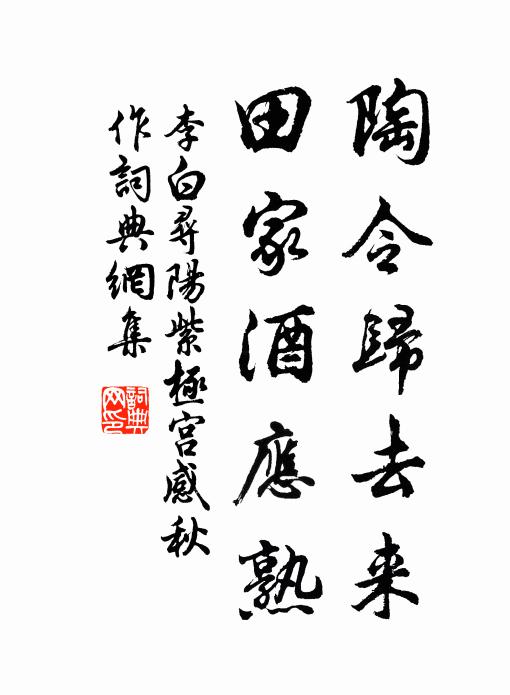 陶令歸去来
田家酒應熟
李白尋陽紫極宮感秋
作詞典網集
詞典
网印